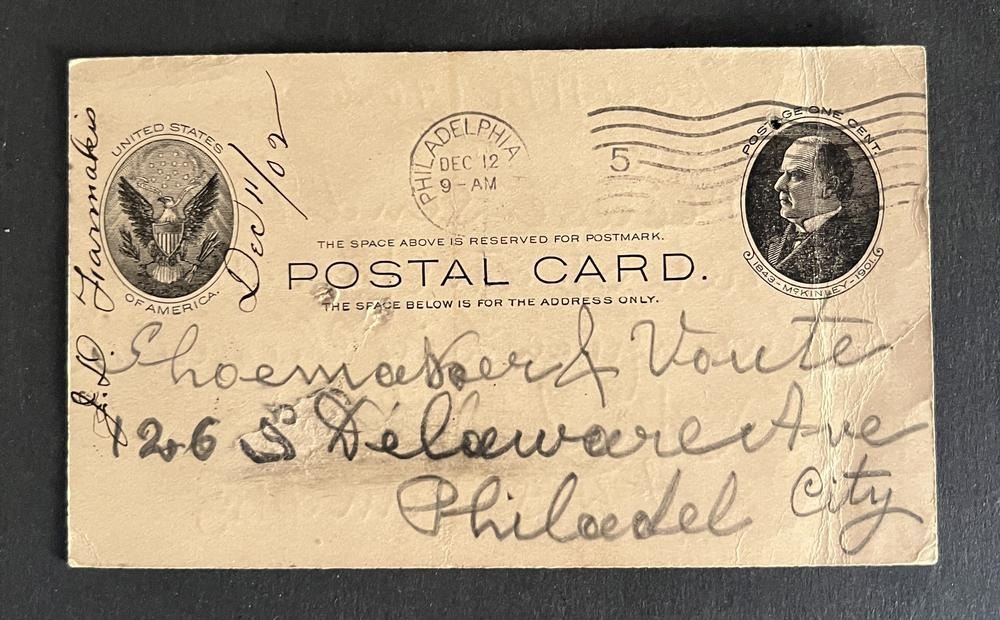 UNITED STATES
OF AMERICA.
Dec 11/02
PHILADELPHIA
DEC 12
9-AM
5
POSTAGE ONE CENT.
1843-McKINLEY-1901.
THE SPACE ABOVE IS RESERVED FOR POSTMARK.
POSTAL CARD.
THE SPACE BELOW IS FOR THE ADDRESS ONLY.
Shoemaker & Voute
126 S Delaware Ave
Philadel City